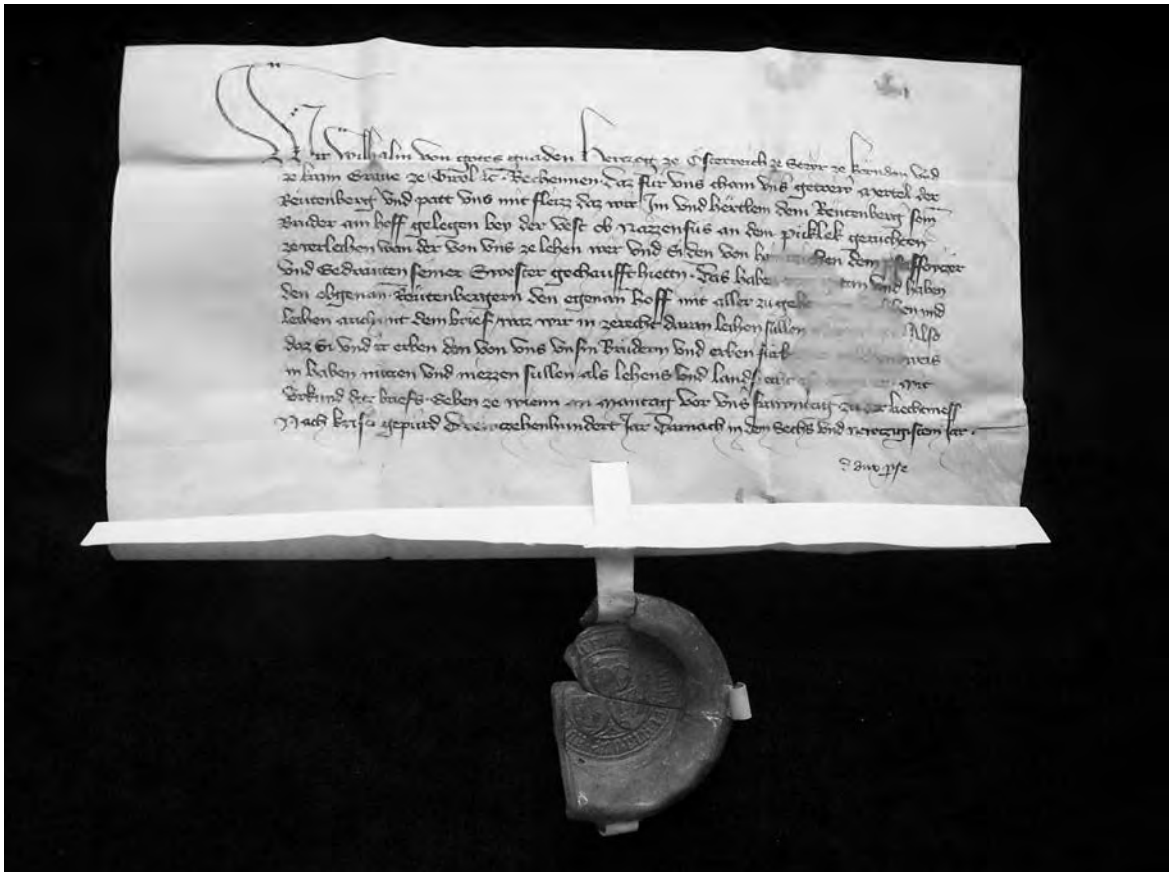 Wir Wilhalm von gotes gnaden Herczog ze Österreich ze Steyr ze kernden und
ze krain Grave ze Tirol etc. Bechennen. daz für uns cham uns getrewr Mertel der
Rëutenberg und patt uns mit fleizz daz wir Im und hërtlem dem Rëutenberg seim
Bruder ain hoff gelegen bey der vest ob Nazzenfus an dem püklek geruchten
ze verleihen wan der von uns ze lehen wer und Si den von dem
und Gedrauten seiner Swester gechaufft hietn. Das habe und haben
den obgenan. Rëutenbergern den egenan hoff mit aller zugeh und
leihen auch mit dem brief waz wir in ze recht daran leihen sullen Also
daz Si und ir erben den von uns unsern Brüdern und erben
in haben nutzen und niezzen sullen als lehens und lands mit
Urkund dez briefs. Geben ze wienn an Mantag vor unsr frawntag zu der liechtmess
Nach krists gepurd Drewzehenhundert Jar Darnach in dem Sechs und Newnzigisten Jar.
d. dux p se